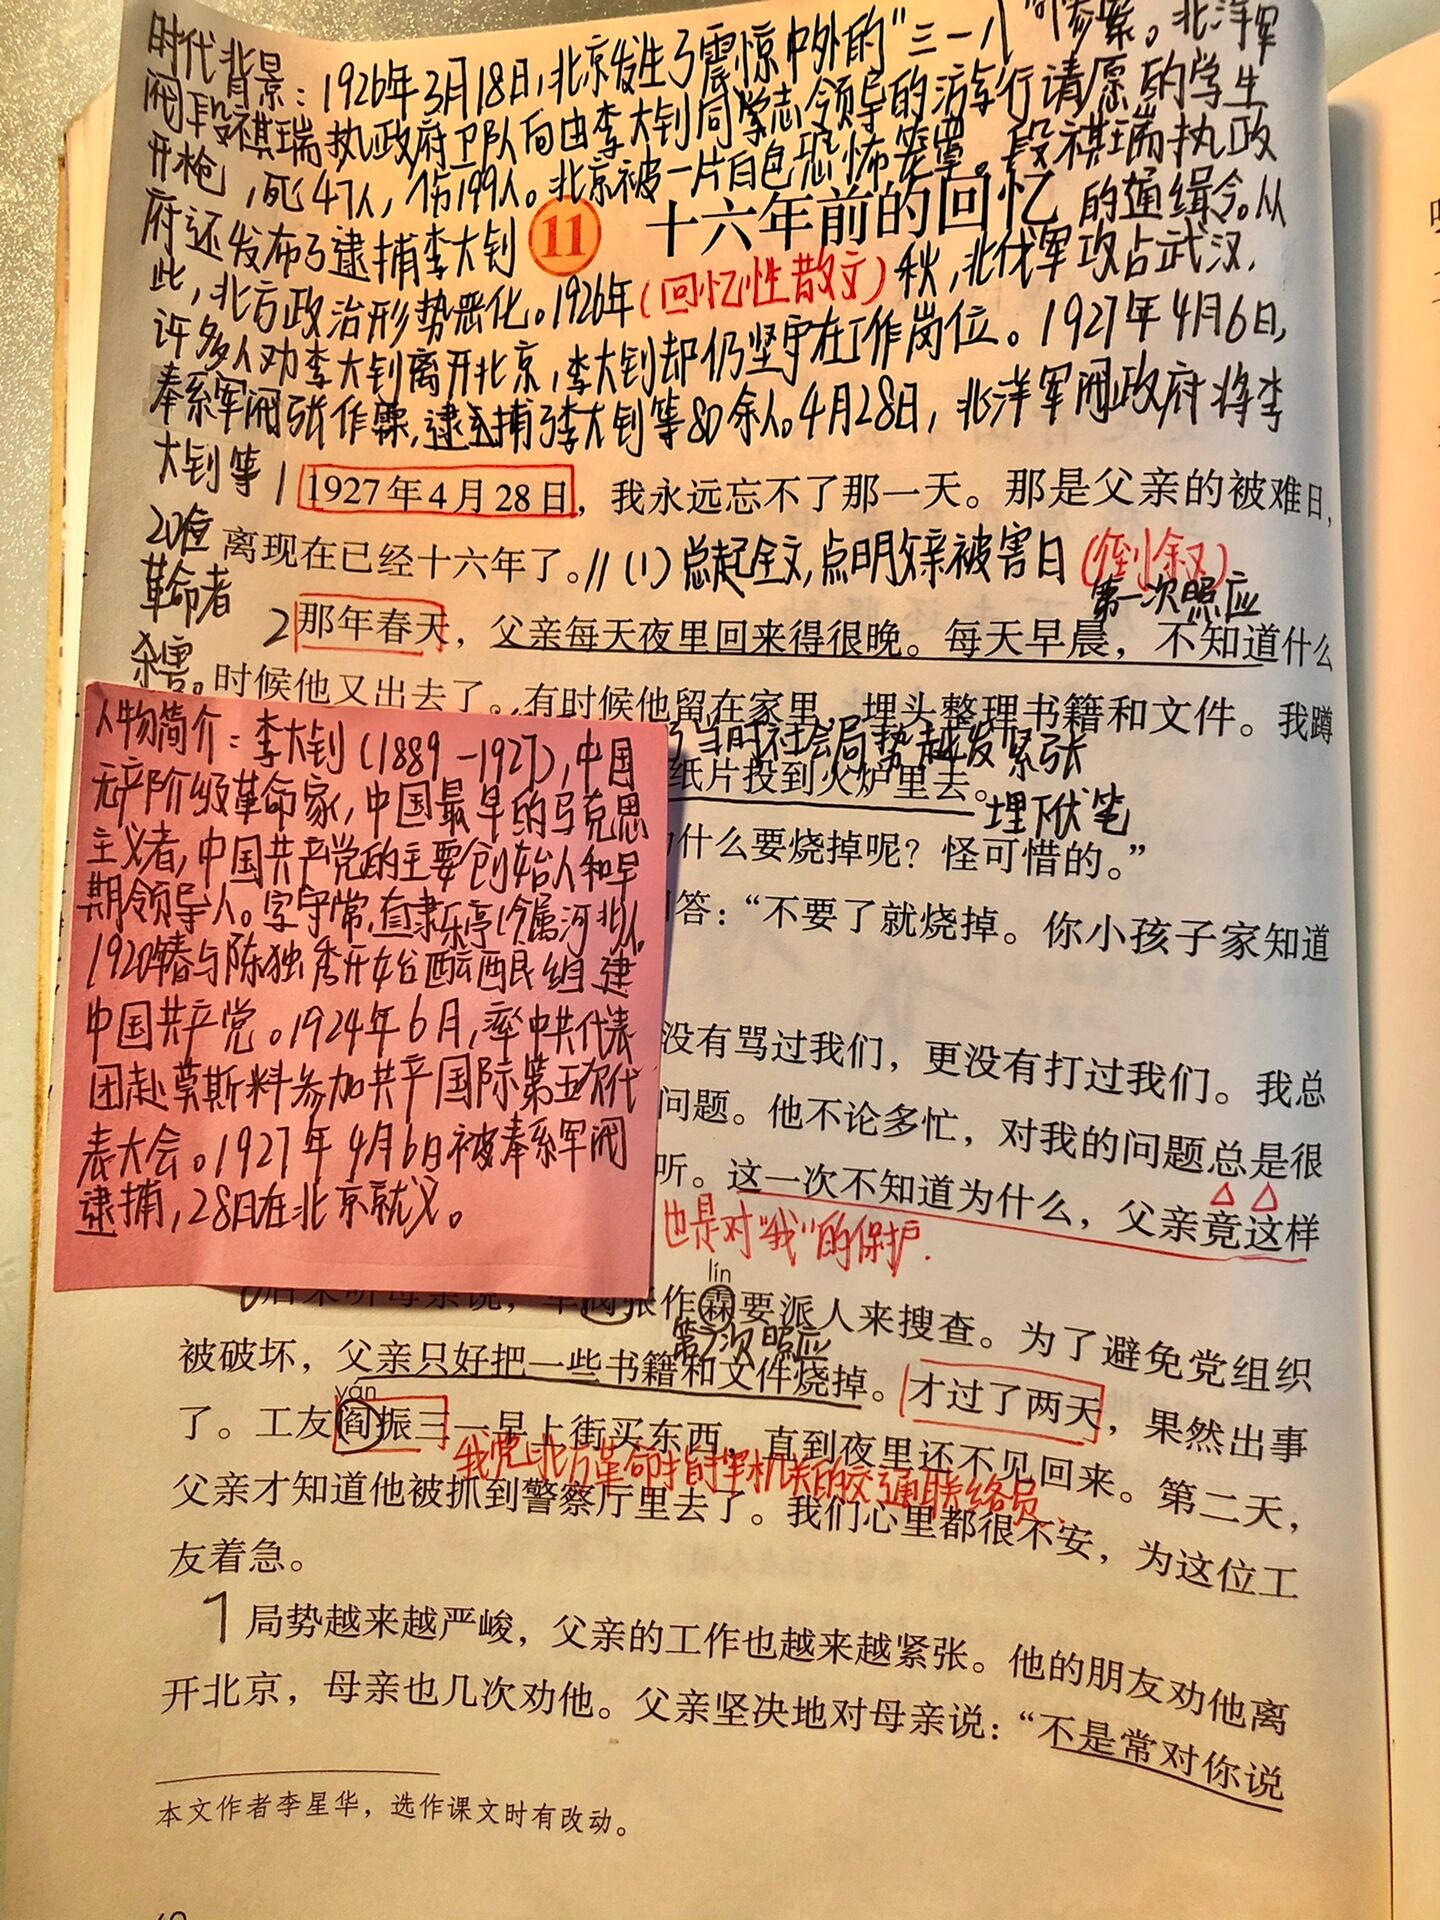 时代背景：1926年3月18日，北京发生了震惊中外的"三一八"惨案。北洋军
阀段祺瑞执政府卫队向由李大钊同志领导的游行请愿的学生
开枪，死47人，伤199人。北京被一片白色恐怖笼罩。段祺瑞执政
府还发布了逮捕李大钊的通缉令。从
11 十六年前的回忆
此，北方政治形势恶化。1926年秋，北伐军攻占武汉，
(回忆性散文)
许多人劝李大钊离开北京，李大钊却仍坚守在工作岗位。1927年4月6日，
奉系军阀张作霖，逮捕了李大钊等80余人。4月28日，北洋军阀政府将李
大钊等
20位
革命者
杀害。
1 1927年4月28日，我永远忘不了那一天。那是父亲的被难日，
离现在已经十六年了。//(1)总起全文，点明父亲被害日(倒叙)
第一次照应
2 那年春天，父亲每天夜里回来得很晚。每天早晨，不知道什么
时候他又出去了。有时候他留在家里，埋头整理书籍和文件。我蹲
了当时社会局势越发紧张
纸片投到火炉里去。
埋下伏笔
什么要烧掉呢？怪可惜的。”
答：“不要了就烧掉。你小孩子家知道
没有骂过我们，更没有打过我们。我总
问题。他不论多忙，对我的问题总是很
听。这一次不知道为什么，父亲竟这样
也是对"我"的保护.
人物简介：李大钊(1889-1927)，中国
无产阶级革命家，中国最早的马克思
主义者，中国共产党的主要创始人和早
期领导人。字守常，直隶乐亭(今属河北)人。
1920年春与陈独秀开始酝酿组建
中国共产党。1924年6月，率中共代表
团赴莫斯科参加共产国际第五次代
表大会。1927年4月6日被奉系军阀
逮捕，28日在北京就义。
lín
后来听母亲说，军阀张作霖要派人来搜查。为了避免党组织
第2次照应
被破坏，父亲只好把一些书籍和文件烧掉。才过了两天，果然出事
yán
了。工友阎振三一早上街买东西，直到夜里还不见回来。第二天，
我党北方革命指挥机关的交通联络员.
父亲才知道他被抓到警察厅里去了。我们心里都很不安，为这位工
友着急。
7 局势越来越严峻，父亲的工作也越来越紧张。他的朋友劝他离
开北京，母亲也几次劝他。父亲坚决地对母亲说：“不是常对你说
本文作者李星华，选作课文时有改动。